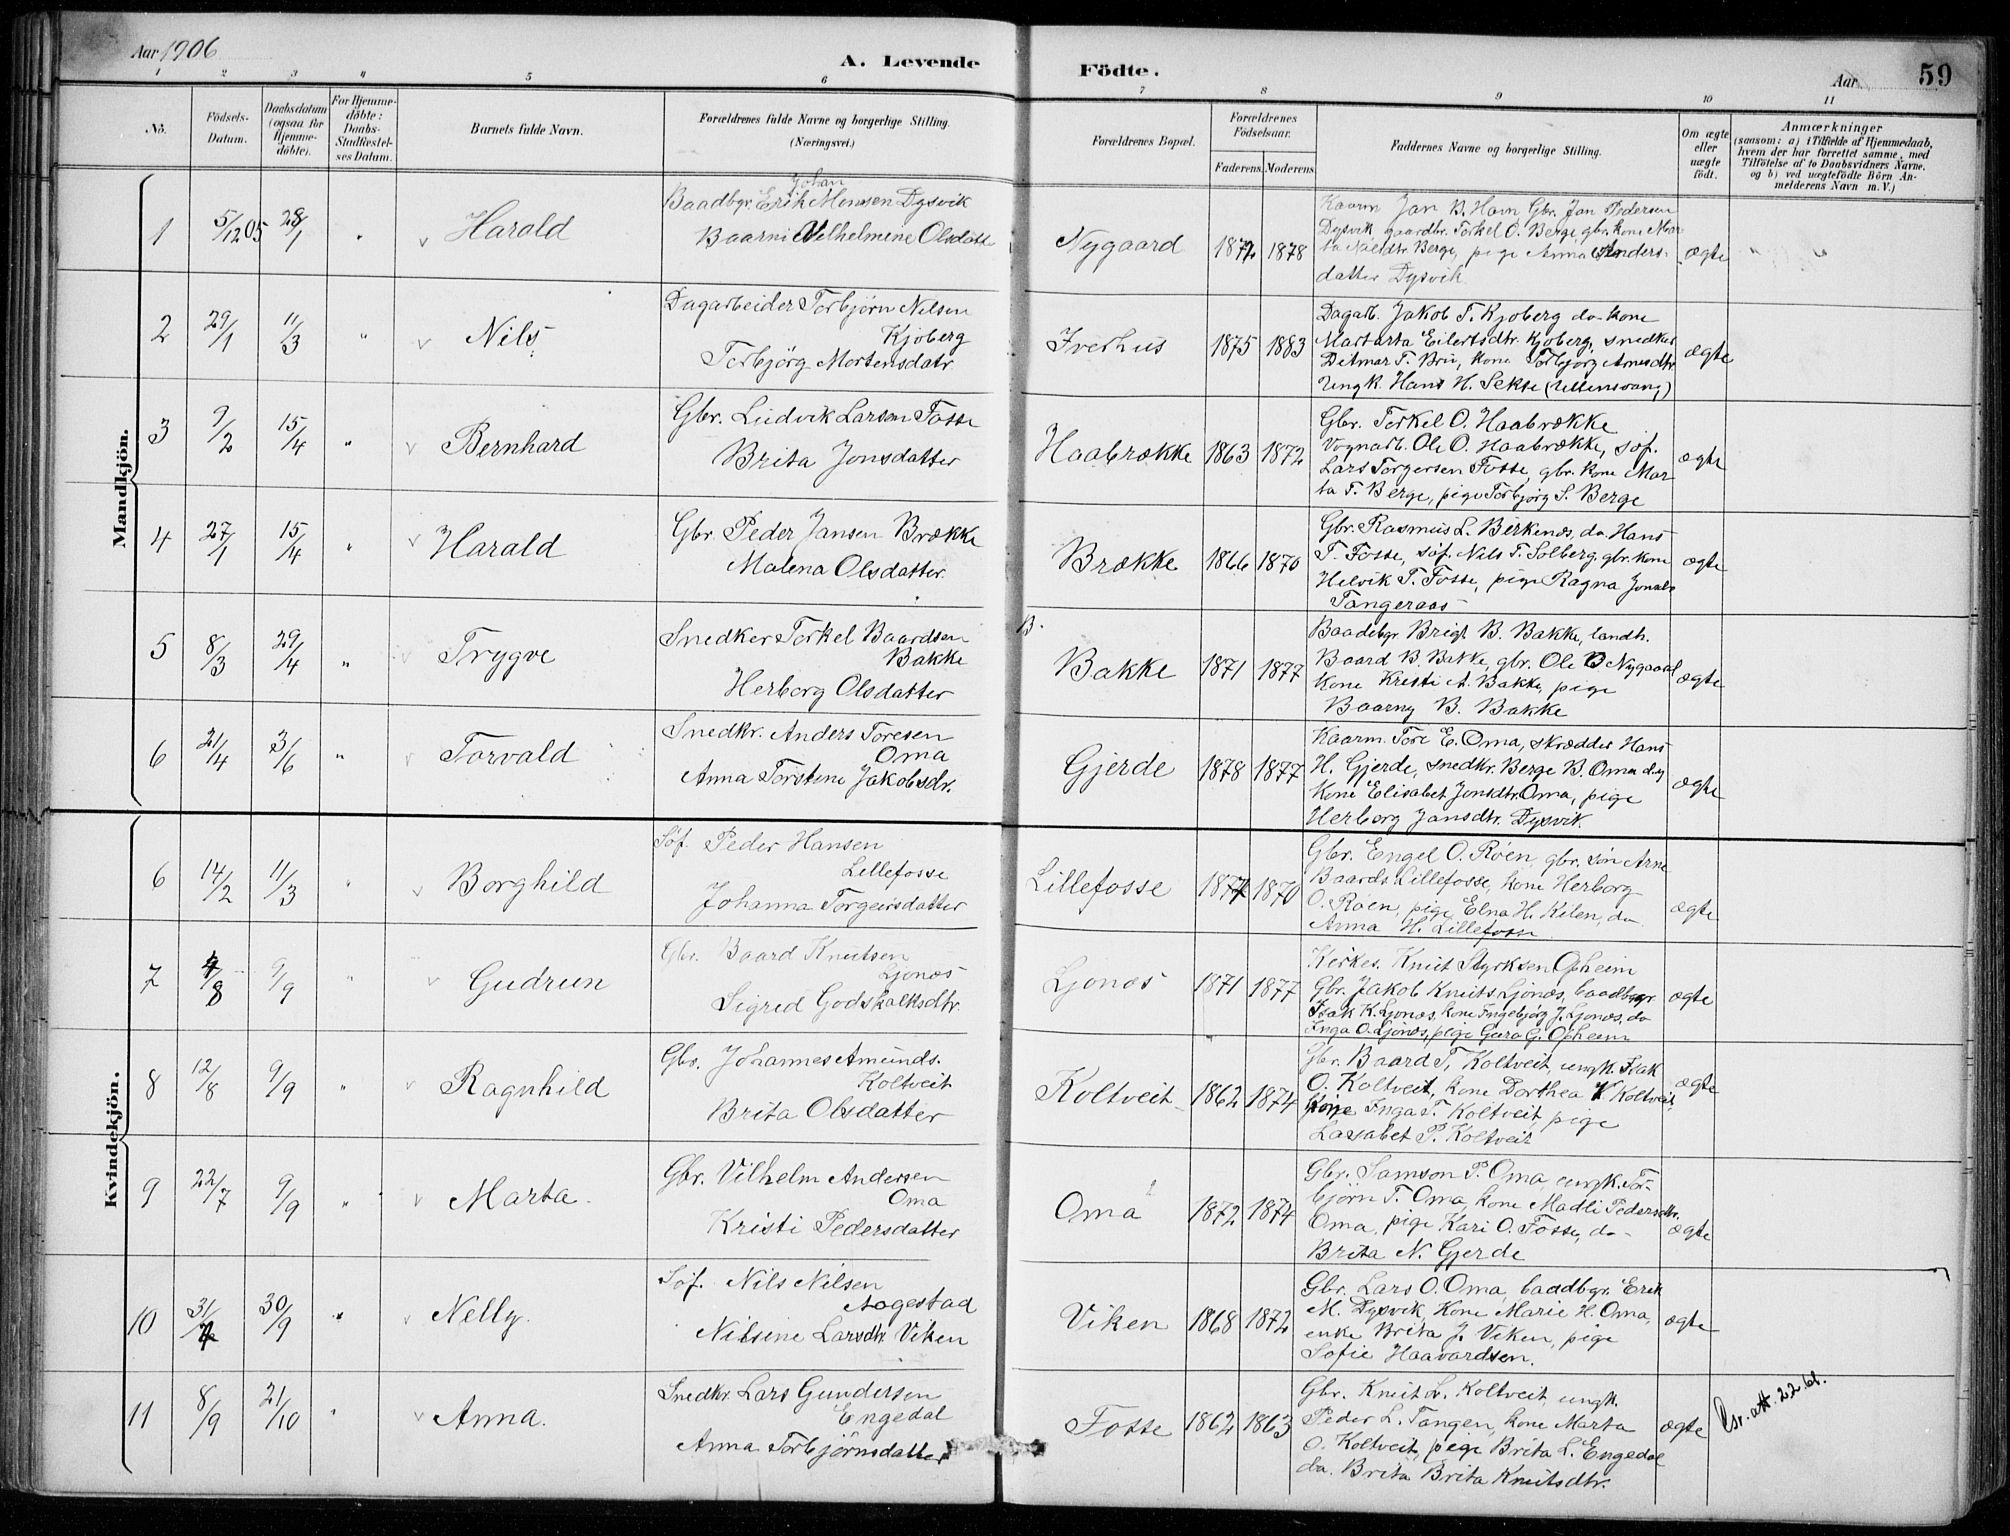 Aar 1906
A. Levende
Födte.
Aar
59
1 2 3 4 5 6 7 8 9 10 11
No.
Födsels-
Datum.
Daabsdatum
(ogsaa for
Hjemme-
döbte).
For Hjemme-
döbte:
Daabs-
Stadfæstel-
ses Datum.
Barnets fulde Navn.
Forældrenes fulde Navne og borgerlige Stilling.
(Næringsvei.)
Forældrenes Bopæl.
Forældrenes
Födselsaar.
Faderens. Moderens.
Faddernes Navne og borgerlige Stilling.
Om ægte
eller
uægte
födt.
Anmærkninger
(saasom: a) i Tilfælde af Hjemmedaab,
hvem der har forrettet samme, med
Tilföielse af to Daabsvidners Navne.
og b) ved uægtefödte Börn An-
melderens Navn m. V.)
Mandkjön.
1 5/12 05 28/1 " Harald
Johan
Baadbgr. Erik Monsen Dysvik
Baarni Vilhelmine Olsdatte
Nygaard 1872 1878
Kaarm Jan B. Ham Gbr. Jan Pedersen
Dysvik gaardbr. Torkel O. Berge, gbr. kone Mar
ta Berge, pige Anna Anders-
datter Dysvik
ægte
2 29/1 11/3 " Nils
Dagarbeider Torbjörn Nilsen
Kjoberg
Torbjörg Mortensdatr.
Iverhus 1875 1883
Dagarb. Jakob T. Kjoberg do kone
Martarta Eilertsdtr. Kjoberg, snedker
Ditmar T. Bru, kone Torbjörg Arnesdtr.
Ungk. Hans H. Sekse (Ullensvang)
ægte
3 9/2 15/4 " Bernhard
Gbr. Ludvik Larsen Fosse
Brita Jonsdatter
Haabrække 1863 1872
Gbr. Torkel O. Haabrække
Vognarb. Ole O. Haabrække, söf.
Lars Torgersen Fosse, gbr. kone Mar
ta T. Berge, pige Torbjörg S. Berge
ægte
4 27/1 15/4 " Harald
Gbr. Peder Jansen Brække
Malena Olsdatter
Brække 1866 1870
Gbr. Rasmus L. Birkenæs, do Hans
T. Fosse, söf. Nils T. Solberg, gbr. kone
Helvik T. Fosse, pige Ragna
Tangeraas
ægte
5 8/3 29/4 " Trygve
Snedker Torkel Baardsen
Bakke
Herborg Olsdatter
B.
Bakke 1871 1877
Baadebgr. Brigt B. Bakke, landh.
Baard B. Bakke, gbr. Ole B Nygaard
Kone Kristi A. Bakke, pige
Baarny B. Bakke
ægte
6 21/4 3/6 " Torvald
Snedkr. Anders Toresen
Oma
Anna Torstene Jakobsdr.
Gjerde 1878 1877
Kaarm. Tore E. Oma, skrædder Hans
H. Gjerde, snedkr. Berge B. Oma
Kone Elisabet Jonsdtr. Oma, pige
Herborg Jansdtr. Dysvik.
ægte
Kvindekjön.
6 14/2 11/3 " Borghild
Söf. Peder Hansen
Lillefosse
Johanna Torgeirsdatter
Lillefosse 1870
Gbr. Engel O. Röen, gbr. sön Arne
Baards. Lillefosse, kone Herborg
O. Röen, pige Elna H. Kilen, do
Anna H. Lillefosse
ægte
7 4/8 9/9 " Gudrun
Gbr. Baard Knutsen
Ljonæs
Sigrid Godskalksdtr.
Ljonæs 1871 1877
Kirkes. Knut Styrksen Opheim
Gbr. Jakob Knuts. Ljonæs, baadbygr
Isak K. Ljonæs, kone Ingebjörg J. Ljonæs, do
Inga O. Ljonæs, pige Guro G. Opheim
ægte
8 12/8 9/9 " Ragnhild
Gbr. Johannes Amunds.
Koltveit
Brita Olsdatter
Koltveit 1862 1874
Gbr. Baard T. Koltveit, ungk. Isak
O. Koltveit, kone Dorthea K Koltveit,
kone Inga T. Koltveit, pige
Lassabet P. Koltveit
ægte
9 22/7 9/9 " Marta
Gbr. Vilhelm Andersen
Oma
Kristi Pedersdatter
Oma 1872 1874
Gbr. Samson P. Oma, ungk. Tor-
björn T. Oma, kone Madli Pedersdtr.
Oma, pige Kari O. Fosse, do
Brita N. Gjerde
ægte
10 31/7 30/9 " Nelly
Söf. Nils Nilsen
Aogestad
Nilsine Larsdtr. Viken
Viken 1868 1872
Gbr. Lars O. Oma, baadbgr. Erik
M. Dysvik, Kone Marie H. Oma,
enke Brita J. Viken, pige
Sofie Haavardsen.
ægte
11 8/9 21/10 " Anna.
Snedkr. Lars Gundersen
Engedal
Anna Torbjörnsdatter
Fosse 1862 1863
Gbr. Knut L. Koltveit, ungk.
Peder L. Tangen, kone Marta
O. Koltveit, pige Brita L. Engedal
do. Brita Brita Knutsdtr.
ægte
att. 22